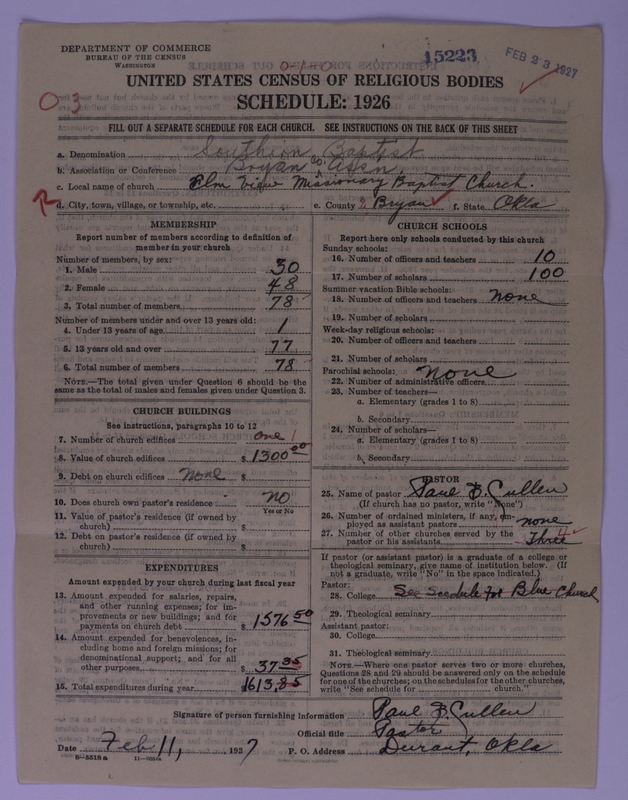 DEPARTMENT OF COMMERCE
BUREAU OF THE CENSUS
WASHINGTON
15223
FEB 23 1927
UNITED STATES CENSUS OF RELIGIOUS BODIES
SCHEDULE: 1926
03
FILL OUT A SEPARATE SCHEDULE FOR EACH CHURCH. SEE INSTRUCTIONS ON THE BACK OF THIS SHEET
a. Denomination Southern Baptist
b. Association or Conference Bryan Co. Assn.
c. Local name of church Elm View Missionary Baptist Church.
d. City, town, village, or township, etc.
e. County Bryan f. State Okla
MEMBERSHIP
Report number of members according to definition of
member in your church
Number of members, by sex:
1. Male 30
2. Female 48
3. Total number of members 78
Number of members under and over 13 years old:
4. Under 13 years of age 1
5. 13 years old and over 77
6. Total number of members 78
NOTE.—The total given under Question 6 should be the
same as the total of males and females given under Question 3.
CHURCH BUILDINGS
See instructions, paragraphs 10 to 12
7. Number of church edifices one 1
8. Value of church edifices $ 1300.00
9. Debt on church edifices None $
10. Does church own pastor's residence NO
Yes or No
11. Value of pastor's residence (if owned by
church) $
12. Debt on pastor's residence (if owned by
church) $
EXPENDITURES
Amount expended by your church during last fiscal year
13. Amount expended for salaries, repairs,
and other running expenses; for im-
provements or new buildings; and for
payments on church debt $ 1576.50
14. Amount expended for benevolences, in-
cluding home and foreign missions; for
denominational support; and for all
other purposes $ 37.35
15. Total expenditures during year $1613.85
CHURCH SCHOOLS
Report here only schools conducted by this church
Sunday schools:
16. Number of officers and teachers 10
17. Number of scholars 100
Summer vacation Bible schools:
18. Number of officers and teachers none
19. Number of scholars
Week-day religious schools:
20. Number of officers and teachers
21. Number of scholars
Parochial schools: None
22. Number of administrative officers
23. Number of teachers—
a. Elementary (grades 1 to 8)
b. Secondary
24. Number of scholars—
a. Elementary (grades 1 to 8)
b. Secondary
PASTOR
25. Name of pastor Paul B. Cullen
(If church has no pastor, write "None")
26. Number of ordained ministers, if any, em-
ployed as assistant pastors none
27. Number of other churches served by the
pastor or his assistants Three
If pastor (or assistant pastor) is a graduate of a college or
theological seminary, give name of institution below. (If
not a graduate, write "No" in the space indicated.)
Pastor:
28. College See Scedule for Blue Church
29. Theological seminary
Assistant pastor:
30. College
31. Theological seminary
NOTE.—Where one pastor serves two or more churches,
Questions 28 and 29 should be answered only on the schedule
for one of the churches; on the schedules for the other churches,
write "See schedule for church."
Signature of person furnishing information Paul B. Cullen
Official title Pastor
Date Feb 11, 1927 P. O. Address Durant, Okla